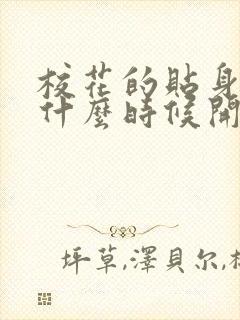 校花的貼身
什麼時候開
坪草,澤貝尔,